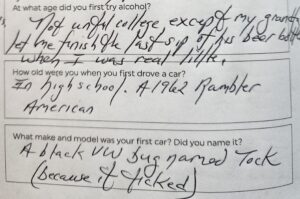 At what age did you first try alcohol?
Not until college except my grandpa
let me finish the last sip of his beer bottle
when I was real little.
How old were you when you first drove a car?
In high school. A 1962 Rambler
American
What make and model was your first car? Did you name it?
A black VW bug named Tock
(because it ticked)